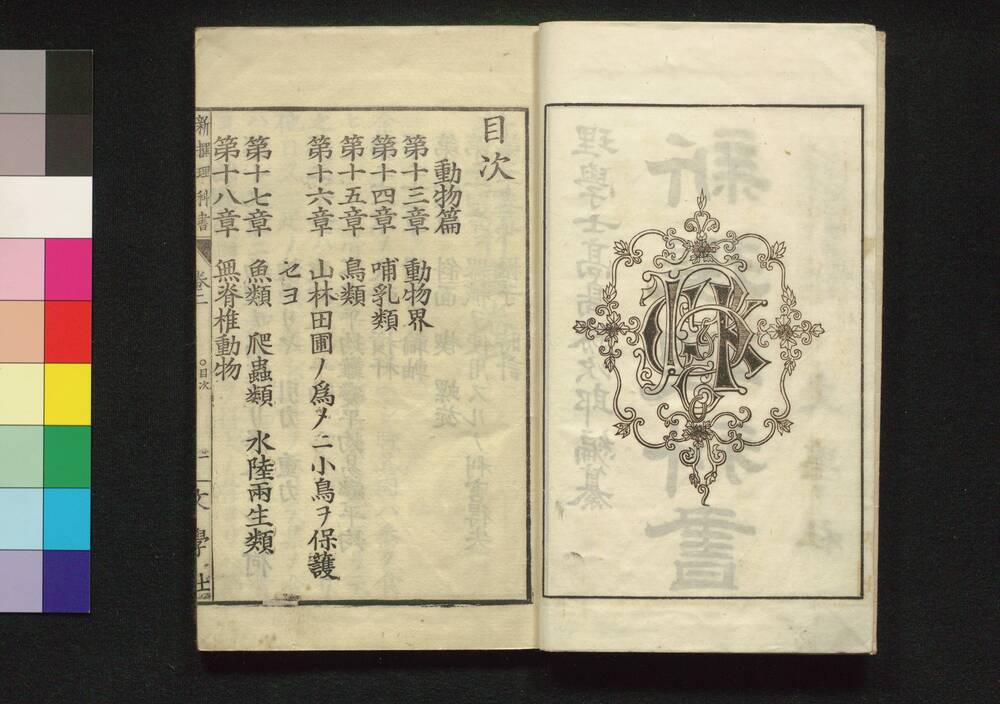 目次
動物篇
第十三章 動物界
第十四章 哺乳類
第十五章 鳥類
第十六章 山林田圃ノ爲メニ小鳥ヲ保護
セヨ
第十七章 魚類 爬蟲類 水陸兩生類
第十八章 無脊椎動物
新撰理科書 卷二 ○目次 一 文學社